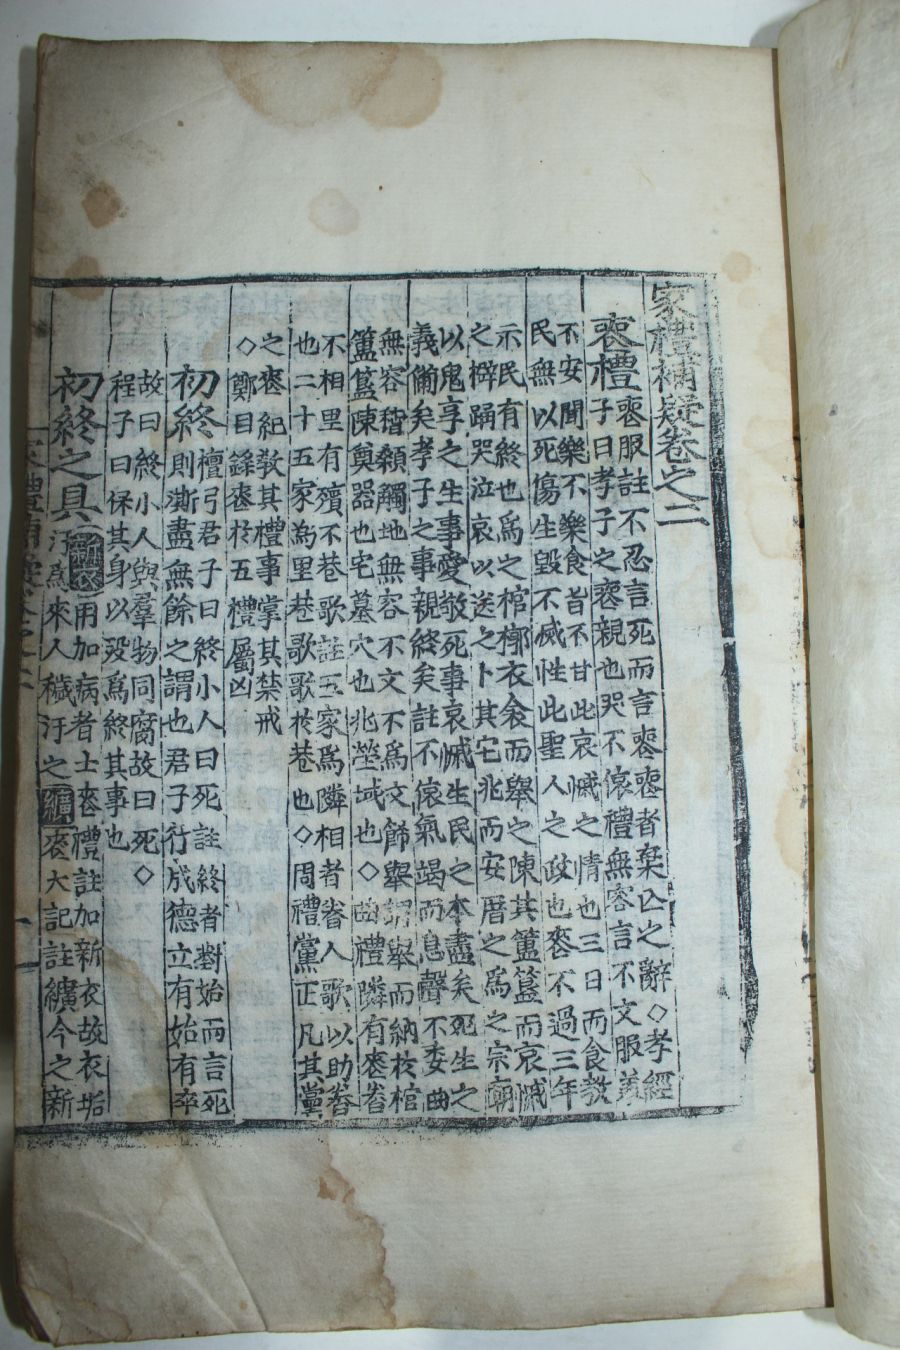 家禮補疑卷之二
喪禮
喪服註不忍言死而言喪喪者棄亡之辭◇孝經
子曰孝子之喪親也哭不偯禮無容言不文服美
不安聞樂不樂食旨不甘此哀慽之情也三日而食教
民無以死傷生毀不滅性此聖人之政也喪不過三年
示民有終也爲之棺槨衣衾而舉之陳其簠簋而哀慽
之擗踊哭泣哀以送之卜其宅兆而安厝之爲之宗廟
以鬼享之生事愛敬死事哀慽生民之本盡矣死生之
義備矣孝子之事親終矣註不偯氣竭而息聲不委曲
無容稽顙觸地無容不文不爲文飾舉謂舉而納棺
簠簋陳奠器也宅墓穴也兆塋域也◇曲禮隣有喪舂
不相里有殯不巷歌註五家爲隣相者舂人歌以助舂
也二十五家爲里巷歌歌於巷也◇周禮黨正凡其黨
之喪紀敎其禮事掌其禁戒
◇鄭目錄喪於五禮屬凶
初終
檀弓君子曰終小人曰死註終者對始而言死
則澌盡無餘之謂也君子行成德立有始有卒
故曰終小人與羣物同腐故曰死◇
程子曰保其身以歿爲終其事也
初終之具
新衣
用加病者士喪禮註加新衣故衣垢
汙爲來人穢汙之
纊
喪大記註纊今之新